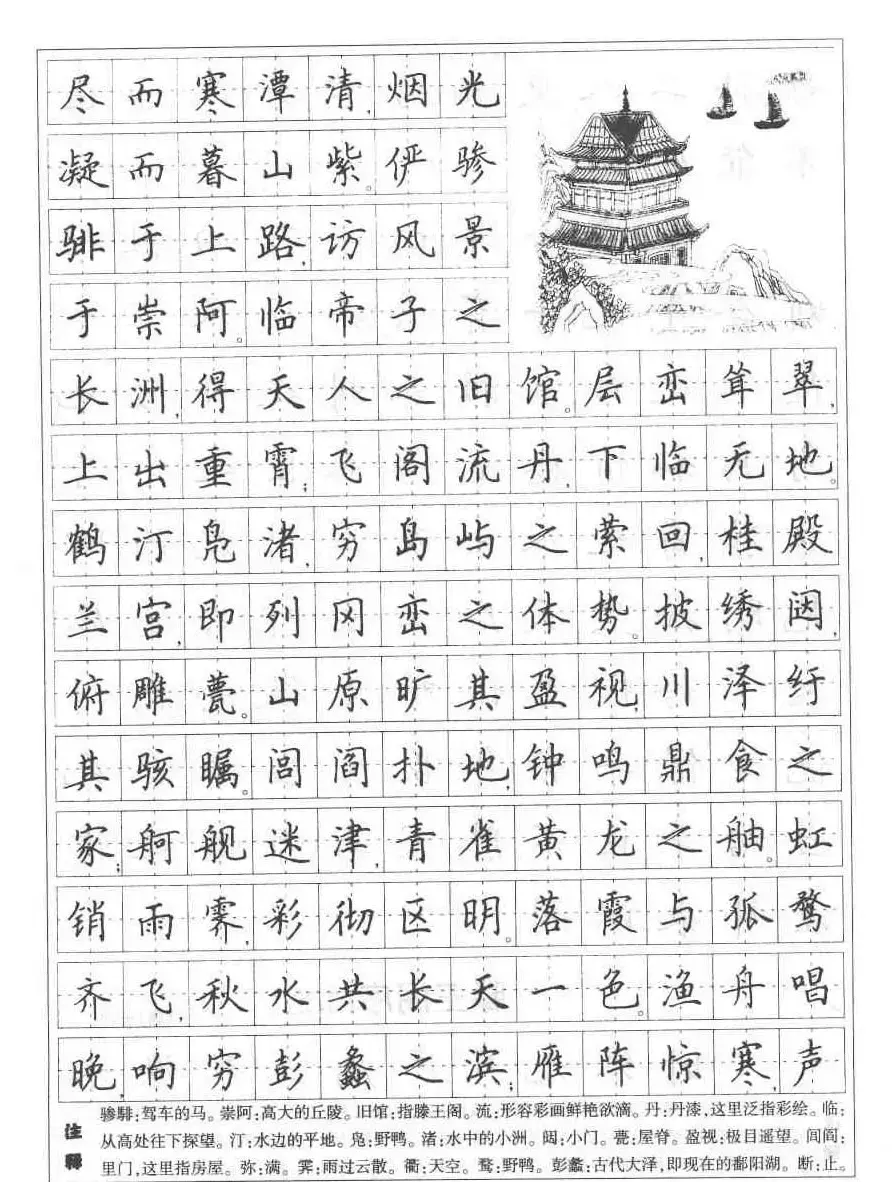 尽而寒潭清，烟光
凝而暮山紫。俨骖
騑于上路，访风景
于崇阿。临帝子之
长洲，得天人之旧馆。层峦耸翠，
上出重霄；飞阁流丹，下临无地。
鹤汀凫渚，穷岛屿之萦回，桂殿
兰宫，即列冈峦之体势。披绣闼，
俯雕甍。山原旷其盈视，川泽纡
其骇瞩。闾阎扑地，钟鸣鼎食之
家；舸舰迷津，青雀黄龙之舳。虹
销雨霁，彩彻区明。落霞与孤鹜
齐飞，秋水共长天一色。渔舟唱
晚，响穷彭蠡之滨；雁阵惊寒，声
注释
骖騑:驾车的马。崇阿:高大的丘陵。旧馆:指滕王阁。流:形容彩画鲜艳欲滴。丹:丹漆,这里泛指彩绘。临:
从高处往下探望。汀:水边的平地。凫:野鸭。渚:水中的小洲。闼:小门。甍:屋脊。盈视:极目遥望。闾阎:
里门,这里指房屋。弥:满。霁:雨过云散。衢:天空。鹜:野鸭。彭蠡:古代大泽,即现在的鄱阳湖。断:止。